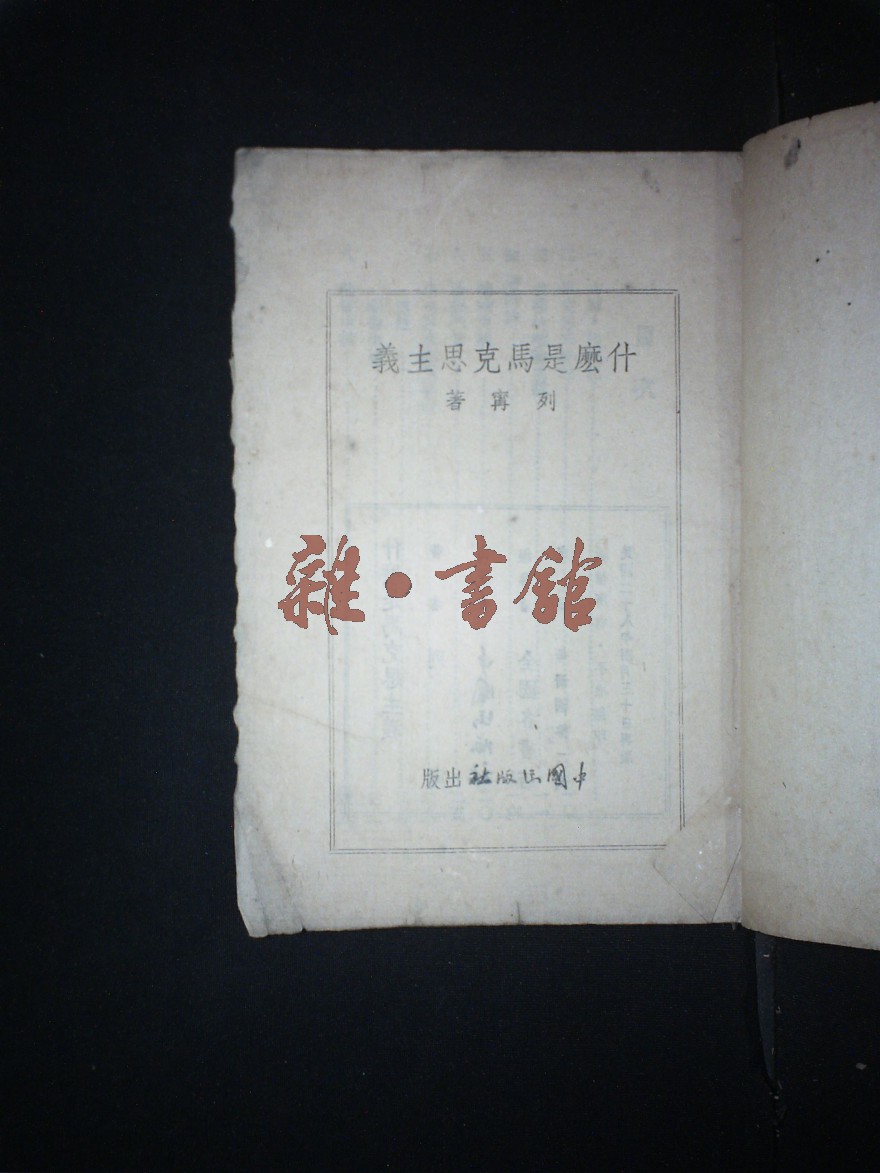 什麽是馬克思主義
列甯著
雜·書館
中國出版社出版